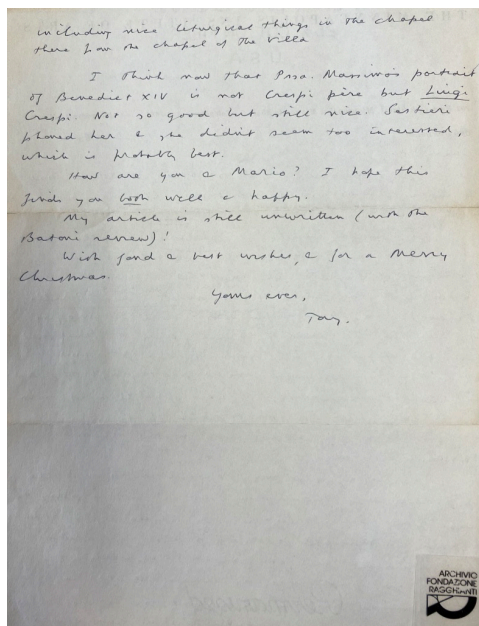 including nice liturgical things in the chapel
there from the chapel of the Villa
I think now that Pssa. Massimo's portrait
of Benedict XIV is not Crespi père but Luigi
Crespi. Not so good but still nice. Sestieri
phoned her & she didn't seem too interested,
which is probably best.
How are you & Mario? I hope this
finds you both well & happy.
My article is still unwritten (with the
Batoni review)!
With fond & best wishes, & for a Merry
Christmas.
Yours ever,
Tony.
ARCHIVIO
FONDAZIONE
RAGGHIANTI